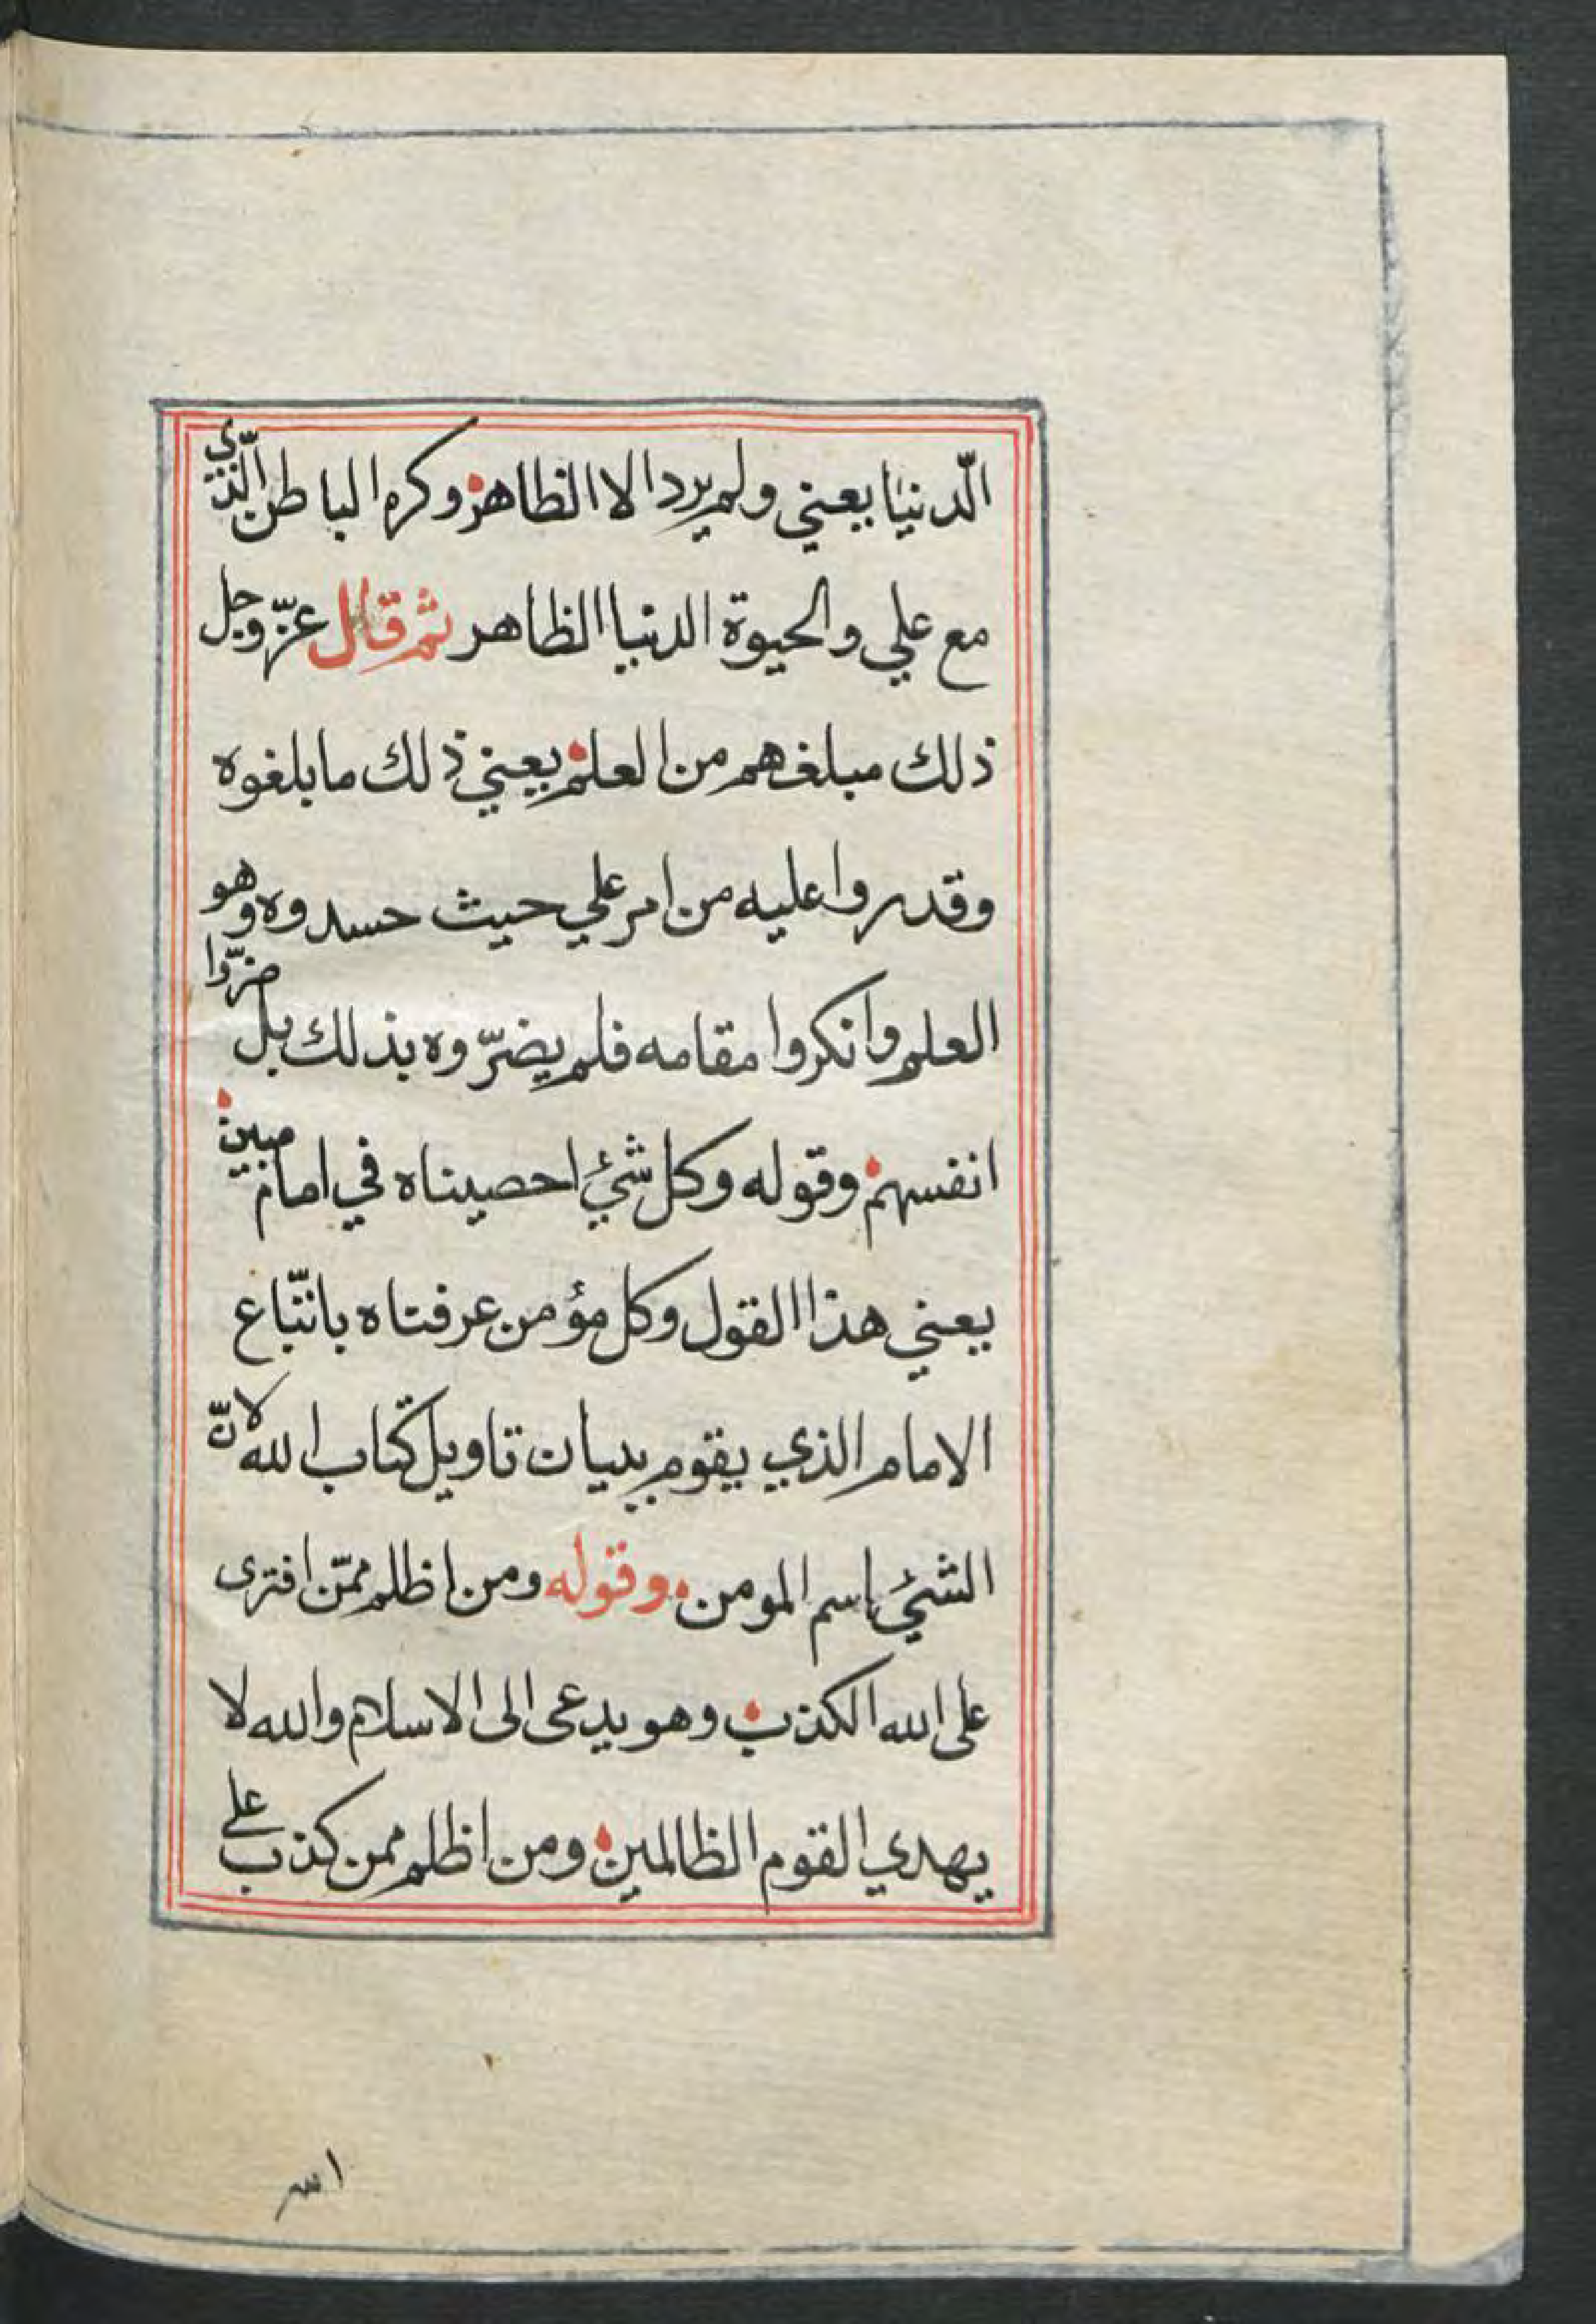 الّدنيا يعني ولم يرد الا الظاهر وكره الباطن الّذي
مع علي والحيوة الدنيا الظاهر ثم قال عزّ وجل
ذلك مبلغهم من العلم يعني ذلك ما بلغوه
وقدروا عليه من امر علي حيث حسدوه وهو
العلم وانكروا مقامه فلم يضرّوه بذلك بل ضرّوا
انفسهم وقوله وكل شئ احصيناه في امام مبين
يعني هذا القول وكل مؤمن عرفناه باتّباع
الامام الذي يقوم ببيان تاويل كتاب الله لانّ
الشئ اسم المومن وقوله ومن اظلم ممّن افترى
على الله الكذب وهو يدعى الى الاسلام والله لا
يهدي القوم الظالمين ومن اظلم ممن كذب على